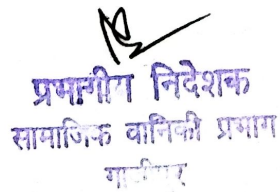 प्रभागीय निदेशक
सामाजिक वानिकी प्रभाग